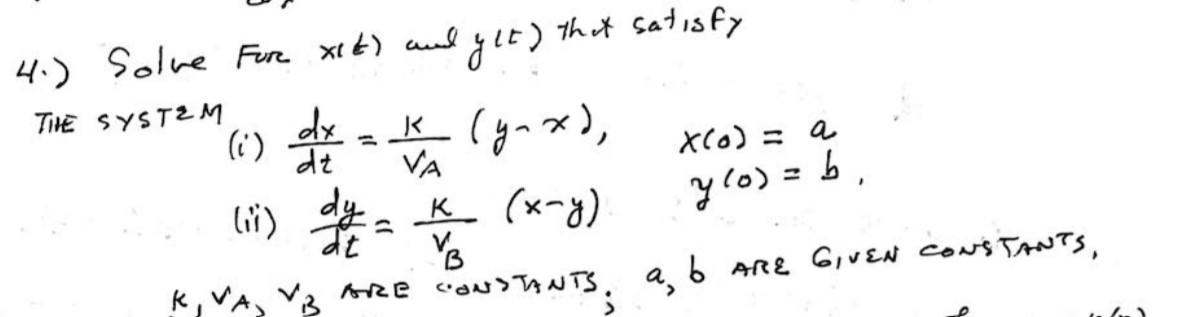 4.) Solve For x(t) and y(t) that satisfy
THE SYSTEM
(i) dx/dt = K/VA (y-x), x(0) = a
(ii) dy/dt = K/VB (x-y) y(0) = b,
K, VA, VB ARE CONSTANTS; a, b ARE GIVEN CONSTANTS,